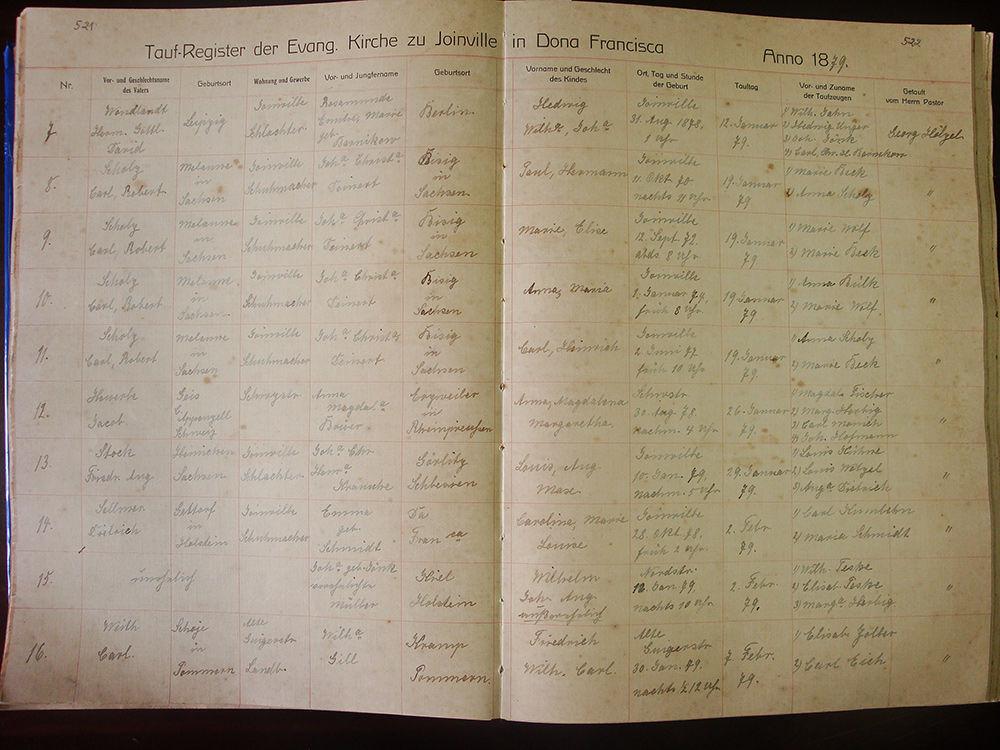 521
522
Tauf-Register der Evang. Kirche zu Joinville in Dona Francisca
Anno 1879.
Nr.
Vor- und Geschlechtsname des Vaters
Geburtsort
Wohnung und Gewerbe
Vor- und Jungfername
Geburtsort
Vorname und Geschlecht des Kindes
Ort, Tag und Stunde der Geburt
Tauftag
Vor- und Zuname der Taufzeugen
Getauft vom Herrn Pastor
7.
Wendlandt
Herm. Gottl.
David
Leipzig
Joinville
Schlachter
Rosamunde
Marie
geb.
Barnikow
Berlin
Hedwig
Wilh.e, Joh.a
Joinville
31. Aug. 1878,
1 Uhr
12. Januar
79.
1) Wilh. Jahn
2) Hedwig Unger
4) Carl Barnikow
Georg Hölzel
8.
Scholz
Carl, Robert
Melaune
in
Sachsen
Joinville
Schuhmacher
Joh.a Christ.a
Teinert
Bisig
in
Sachsen
Paul, Hermann
Joinville
11. Okt. 70
nachts 11 Uhr.
19. Januar
79
1) Marie Beck
2) Anna Scholz
"
9.
Scholz
Carl, Robert
Melaune
in
Sachsen
Joinville
Schuhmacher
Joh.a Christ.a
Teinert
Bisig
in
Sachsen
Marie, Elise
Joinville
12. Sept. 72.
abds. 8 Uhr
19. Januar
79
1) Marie Wolf
2) Marie Beck
"
10.
Scholz
Carl, Robert
Melaune
in
Sachsen
Joinville
Schuhmacher
Joh.a Christ.a
Teinert
Bisig
in
Sachsen
Anna, Maria
Joinville
1. Januar 74,
früh 8 Uhr.
19. Januar
79
1) Anna
2) Marie Wolf
"
11.
Scholz
Carl, Robert
Melaune
in
Sachsen
Joinville
Schuhmacher
Joh.a Christ.a
Teinert
Bisig
in
Sachsen
Carl, Heinrich
Joinville
2. Juni 77
früh 10 Uhr
19. Januar
79.
1) Anna
2) Marie Beck
"
12.
Jacob
Gais
C. Appenzell
Schweiz
Anna
Magdal.a
Bauer
in
Rheinpreussen
Anna, Magdalena
Margaretha
30. Aug. 78.
nachm. 4 Uhr
26. Januar
79.
1) Magdal. Fischer
2) Marg. Herbig
3) Carl
4) Joh. Hofmann
"
13.
Stock
Ferdr. Aug.
Hainichen
Sachsen
Joinville
Schlachter
Joh.a Chr.
Görlitz
Schlesien
Louis, Aug.
Max.
Joinville
10. Jan. 79,
nachm. 5 Uhr
29. Januar
79.
1) Louis Kühne
2) Louis Wetzel
3) Aug.a Dietrich
"
14.
Sellmer
Holstein
in
Joinville
Schuhmacher
Emma
geb.
Schmidt
Da
Fran ca
Caroline, Marie
Louise
Joinville
28. Okt. 78,
früh 2 Uhr.
2. Febr.
79.
1) Carl
2) Maria Schmidt
"
15.
unehelich
Joh.a geb.
verehelichte
Müller
Kiel
Holstein
Wilhelm
Joh. Aug.
außerehelich
Nordstr.
12. Jan. 79,
nachts 10 Uhr
2. Febr.
79.
1) Wilh. Teske
2) Elisab. Teske
3) Marg.a Herbig
"
16.
Wilh.
Carl.
in
Pommern
Alte
Landb.
Wilh.a
Gill
Kramp
Pommern.
Friedrich
Wilh. Carl.
Alte
30. Jan. 79.
nachts ½12 Uhr
7. Febr.
79.
1) Elisab. Zölter
2) Carl Eich
"